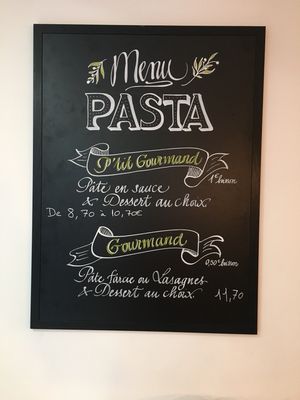 Menu
PASTA
P'tit Gourmand
1€ boisson
Pâte en sauce
& Dessert au choix
De 8,70 à 10,70€
Gourmand
0,50€ boisson
Pâte Farcie ou Lasagnes
& Dessert au choix 11,70